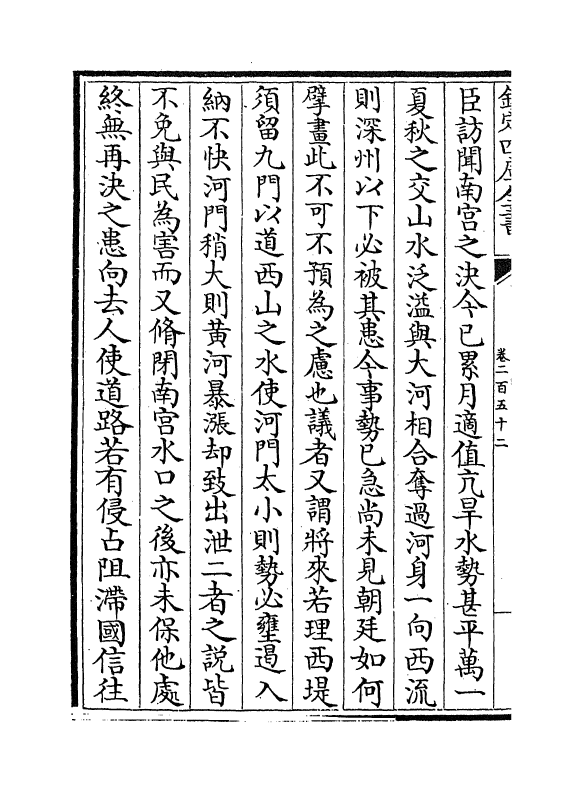 欽定四庫全書
卷二百五十二
臣訪聞南宮之決今已累月適值亢旱水勢甚平萬一
夏秋之交山水泛溢與大河相合奪過河身一向西流
則深州以下必被其患今事勢已急尚未見朝廷如何
擘畫此不可不預為之慮也議者又謂將來若理西堤
須留九門以道西山之水使河門太小則勢必壅遏入
納不快河門稍大則黃河暴漲却致出泄二者之說皆
不免與民為害而又脩閉南宮水口之後亦未保他處
終無再決之患向去人使道路若有侵占阻滯國信往